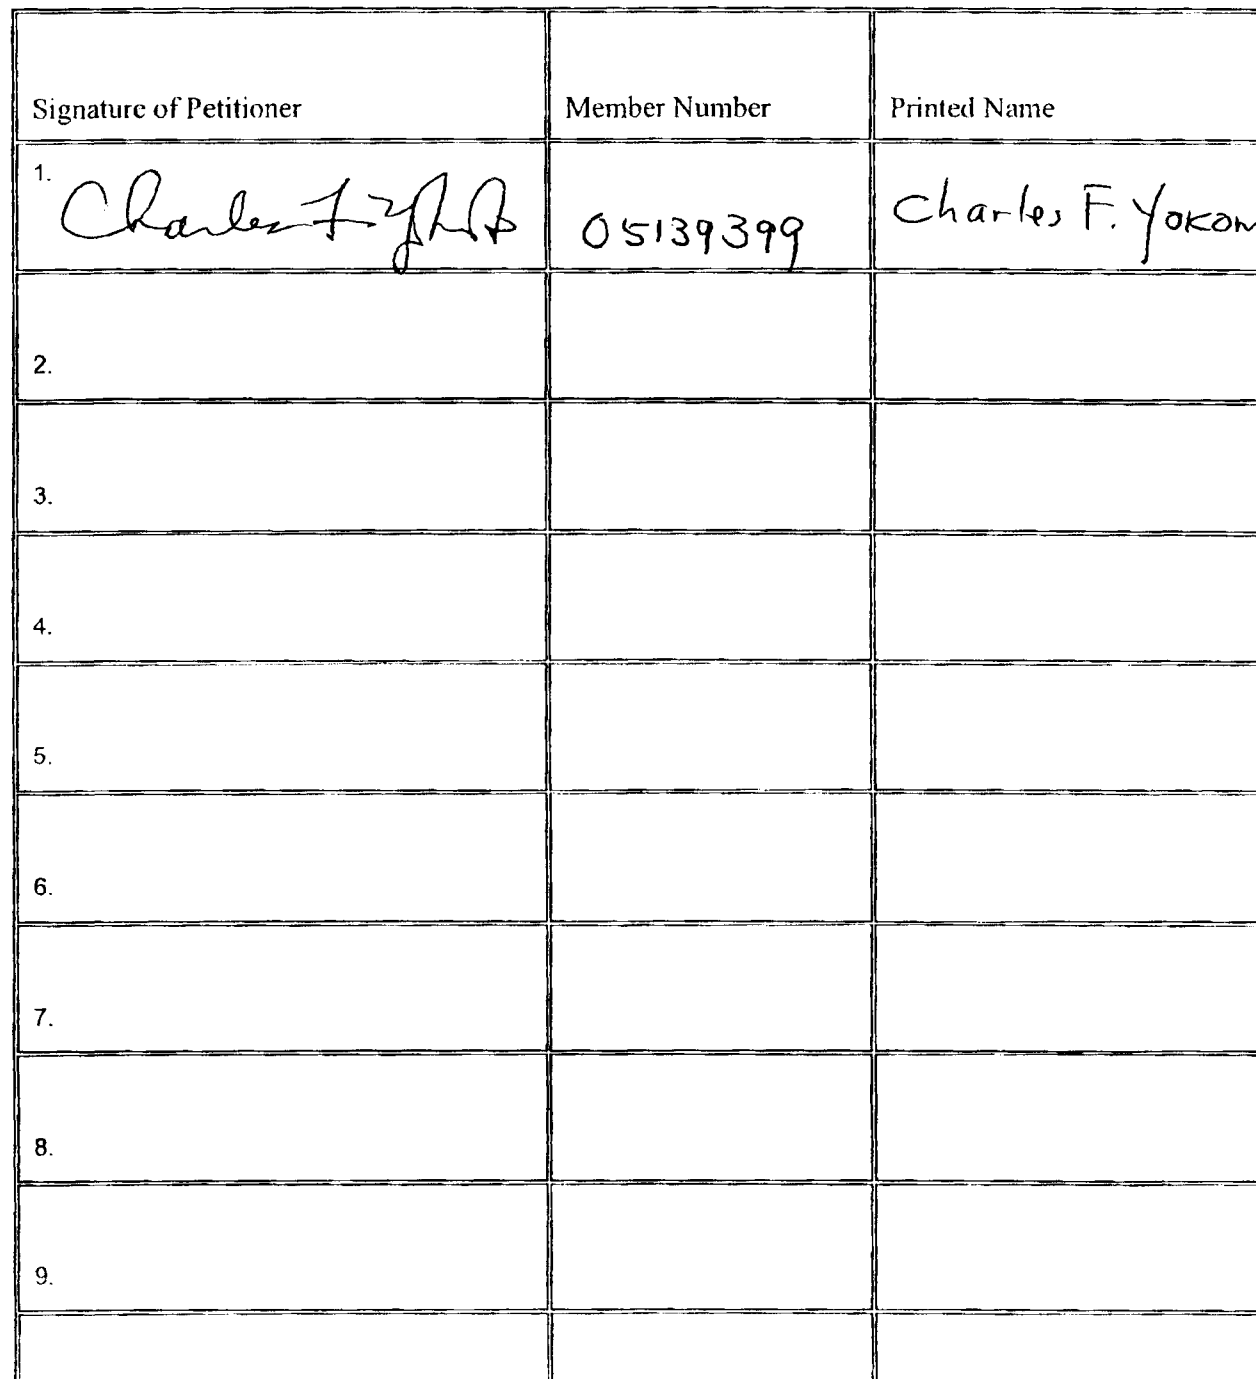 Signature of Petitioner Member Number Printed Name
1. Charles F. 05139399 Charles F. Yokom
2.
3.
4.
5.
6.
7.
8.
9.